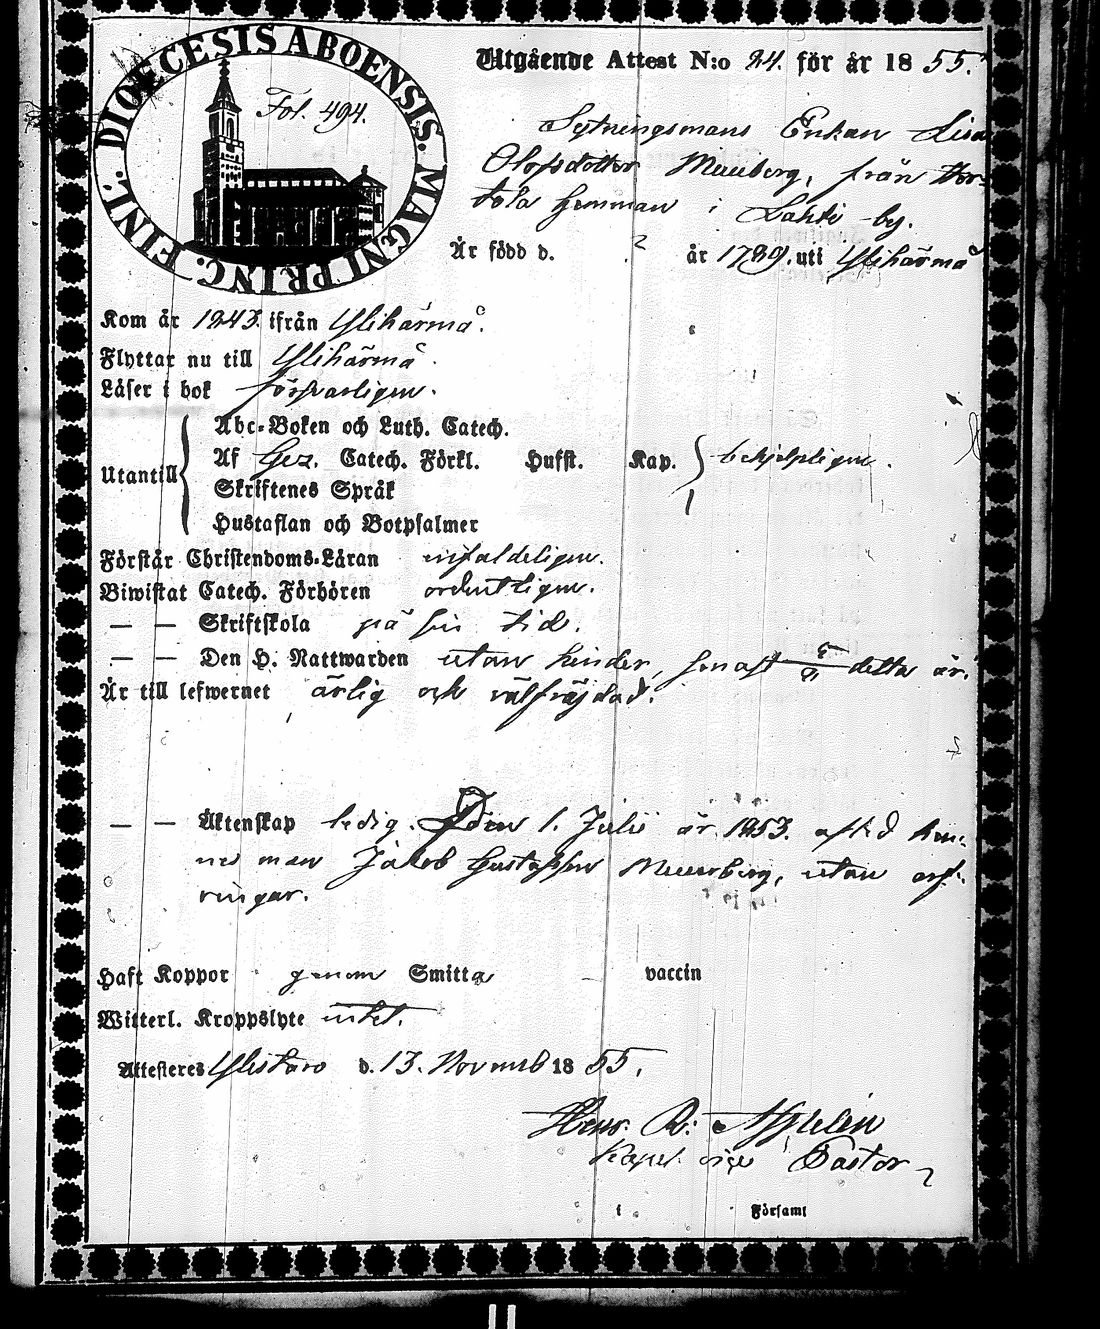 DIOECESIS ABOENSIS. MAGNI PRINC. FINL.
Fol. 494.
Utgående Attest N:o 24. för år 1855.
Sytningsmans Enkan Lisa
Olofsdotter Muuberg, från
tala hemman i Lahti by.
Är född d. år 1789. uti Ylihärmä
Kom år 1843. ifrån Ylihärmä.
Flyttar nu till Ylihärmä.
Läser i bok försvarligen.
Utantill
Abc-Boken och Luth. Catech.
Af Gez. Catech. Förkl. Husst. Kap. behjelpligen.
Skriftenes Språk
Hustaflan och Botpsalmer
Förstår Christendoms-Läran enfaldeligen.
Biwistat Catech. Förhören ordentligen.
— — Skriftskola på sin tid.
— — Den H. Nattwarden utan hinder, senast detta år.
Är till lefwernet ärlig och välfräjdad.
— — Äktenskap ledig. Den 1. Julii år 1853. afled hen-
nes man Jakob Gustafsson Muurberg, utan arf-
ringar.
Haft Koppor genom Smitta vaccin
Witterl. Kroppslyte intet.
Attesteres Ylistaro d. 13. Novemb 1855.
Henr. R: Aspelin
Kapel. Pastor
i Församl